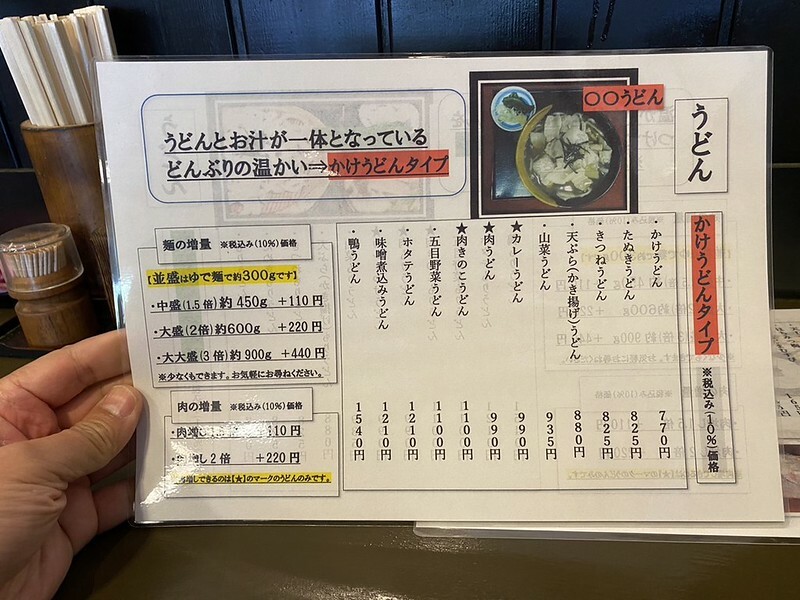 うどん
〇〇うどん
うどんとお汁が一体となっている
どんぶりの温かい⇒かけうどんタイプ
かけうどんタイプ ※税込み(10%)価格
・かけうどん 770円
・たぬきうどん 825円
・きつねうどん 825円
・天ぷら(かき揚げ)うどん 880円
・山菜うどん 935円
★カレーうどん 990円
★肉うどん 990円
★肉きのこうどん 1100円
・五目野菜うどん 1100円
・ホタテうどん 1210円
・味噌煮込みうどん 1210円
・鴨うどん 1540円
麺の増量 ※税込み(10%)価格
【並盛はゆで麺で約300gです】
・中盛(1.5倍)約450g +110円
・大盛(2倍)約600g +220円
・大大盛(3倍)約900g +440円
※少なくもできます。お気軽にお尋ねください。
肉の増量 ※税込み(10%)価格
・肉増し 10円
増し2倍 +220円
増しできるのは【★】のマークのうどんのみです。